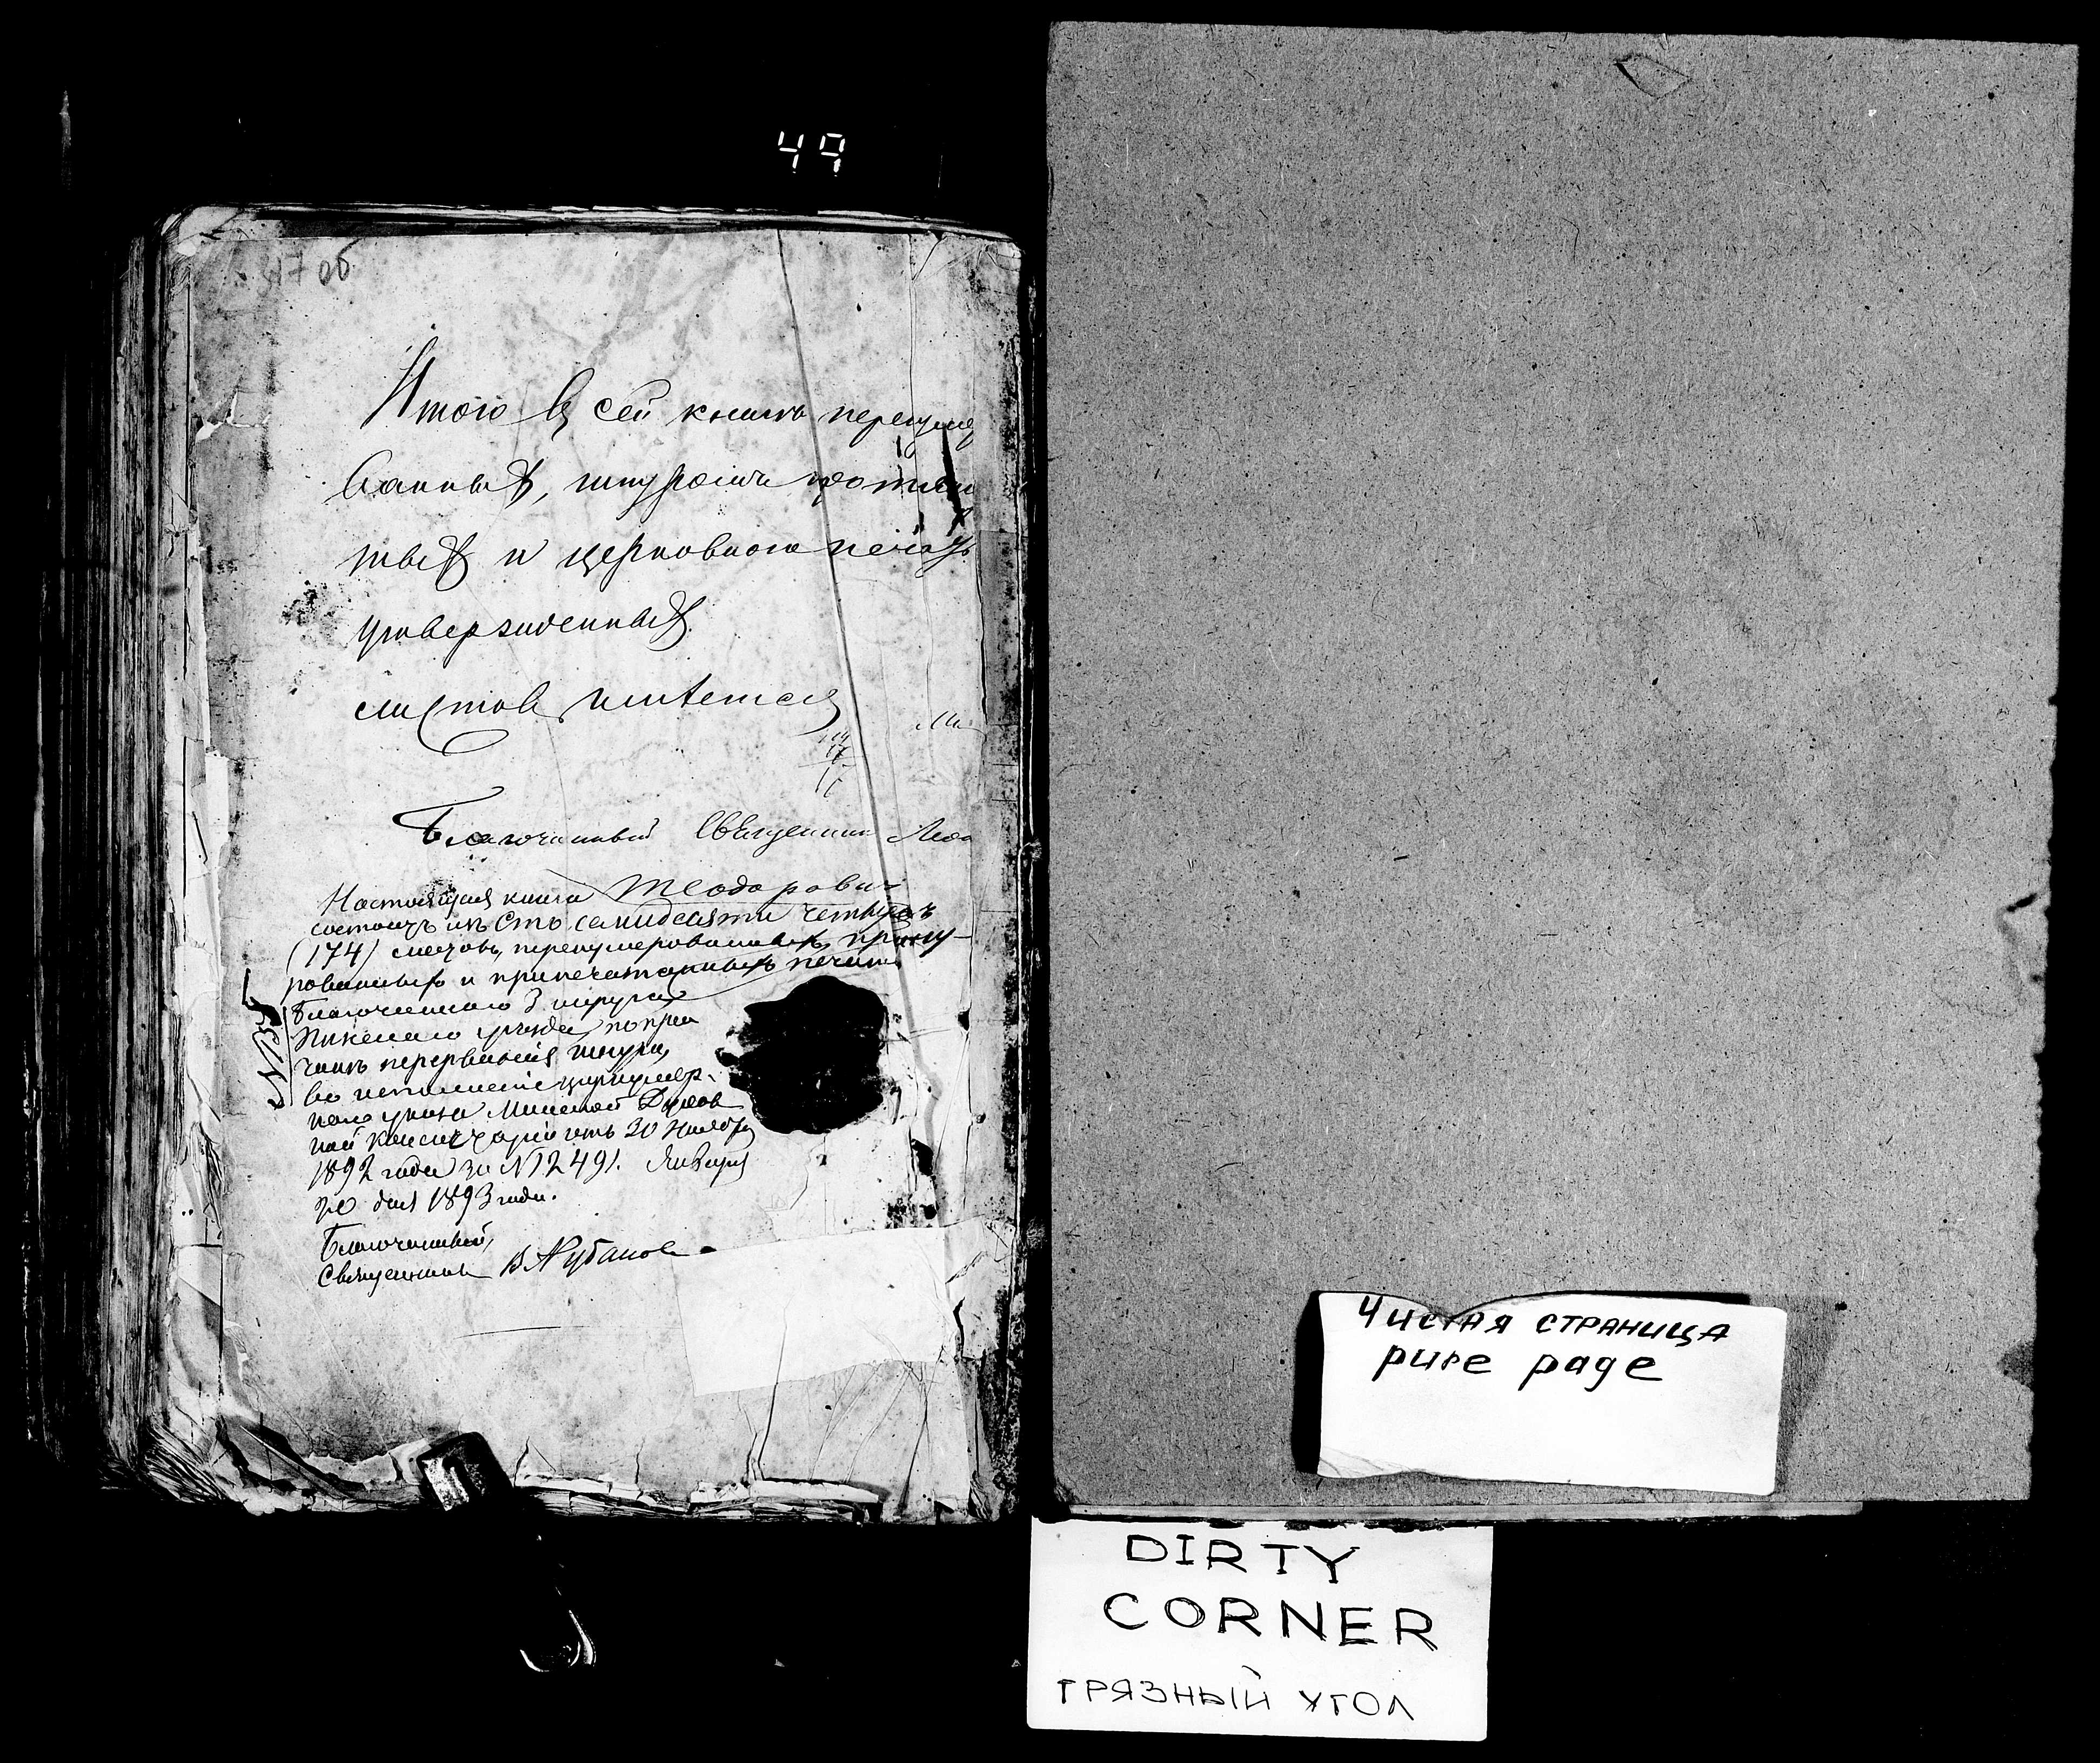 49
47 об
Итого въ сей книгѣ перенуме
ванныхъ, шнуромъ
тыхъ и церковною печать
утвержденныхъ
листовъ имѣется
Благочинный Священникъ
Теодорович
Настоящая книга
состоитъ изъ Сто семидесяти четырехъ
(174) листовъ, перенумерованныхъ, прошну-
рованныхъ и припечатанныхъ печатью
Благочиннаго 3 округа
Пинскаго уѣзда, по при
чинѣ перерванія шнура,
во исполненіе циркуляр-
наго указа Минской Духов
ной Консисторіи отъ 20 Ноября
1892 года за №12491. Января
20 дня 1893 года.
Благочинный,
Священникъ
№35
Чистая страница
pure page
DIRTY
CORNER
грязный угол